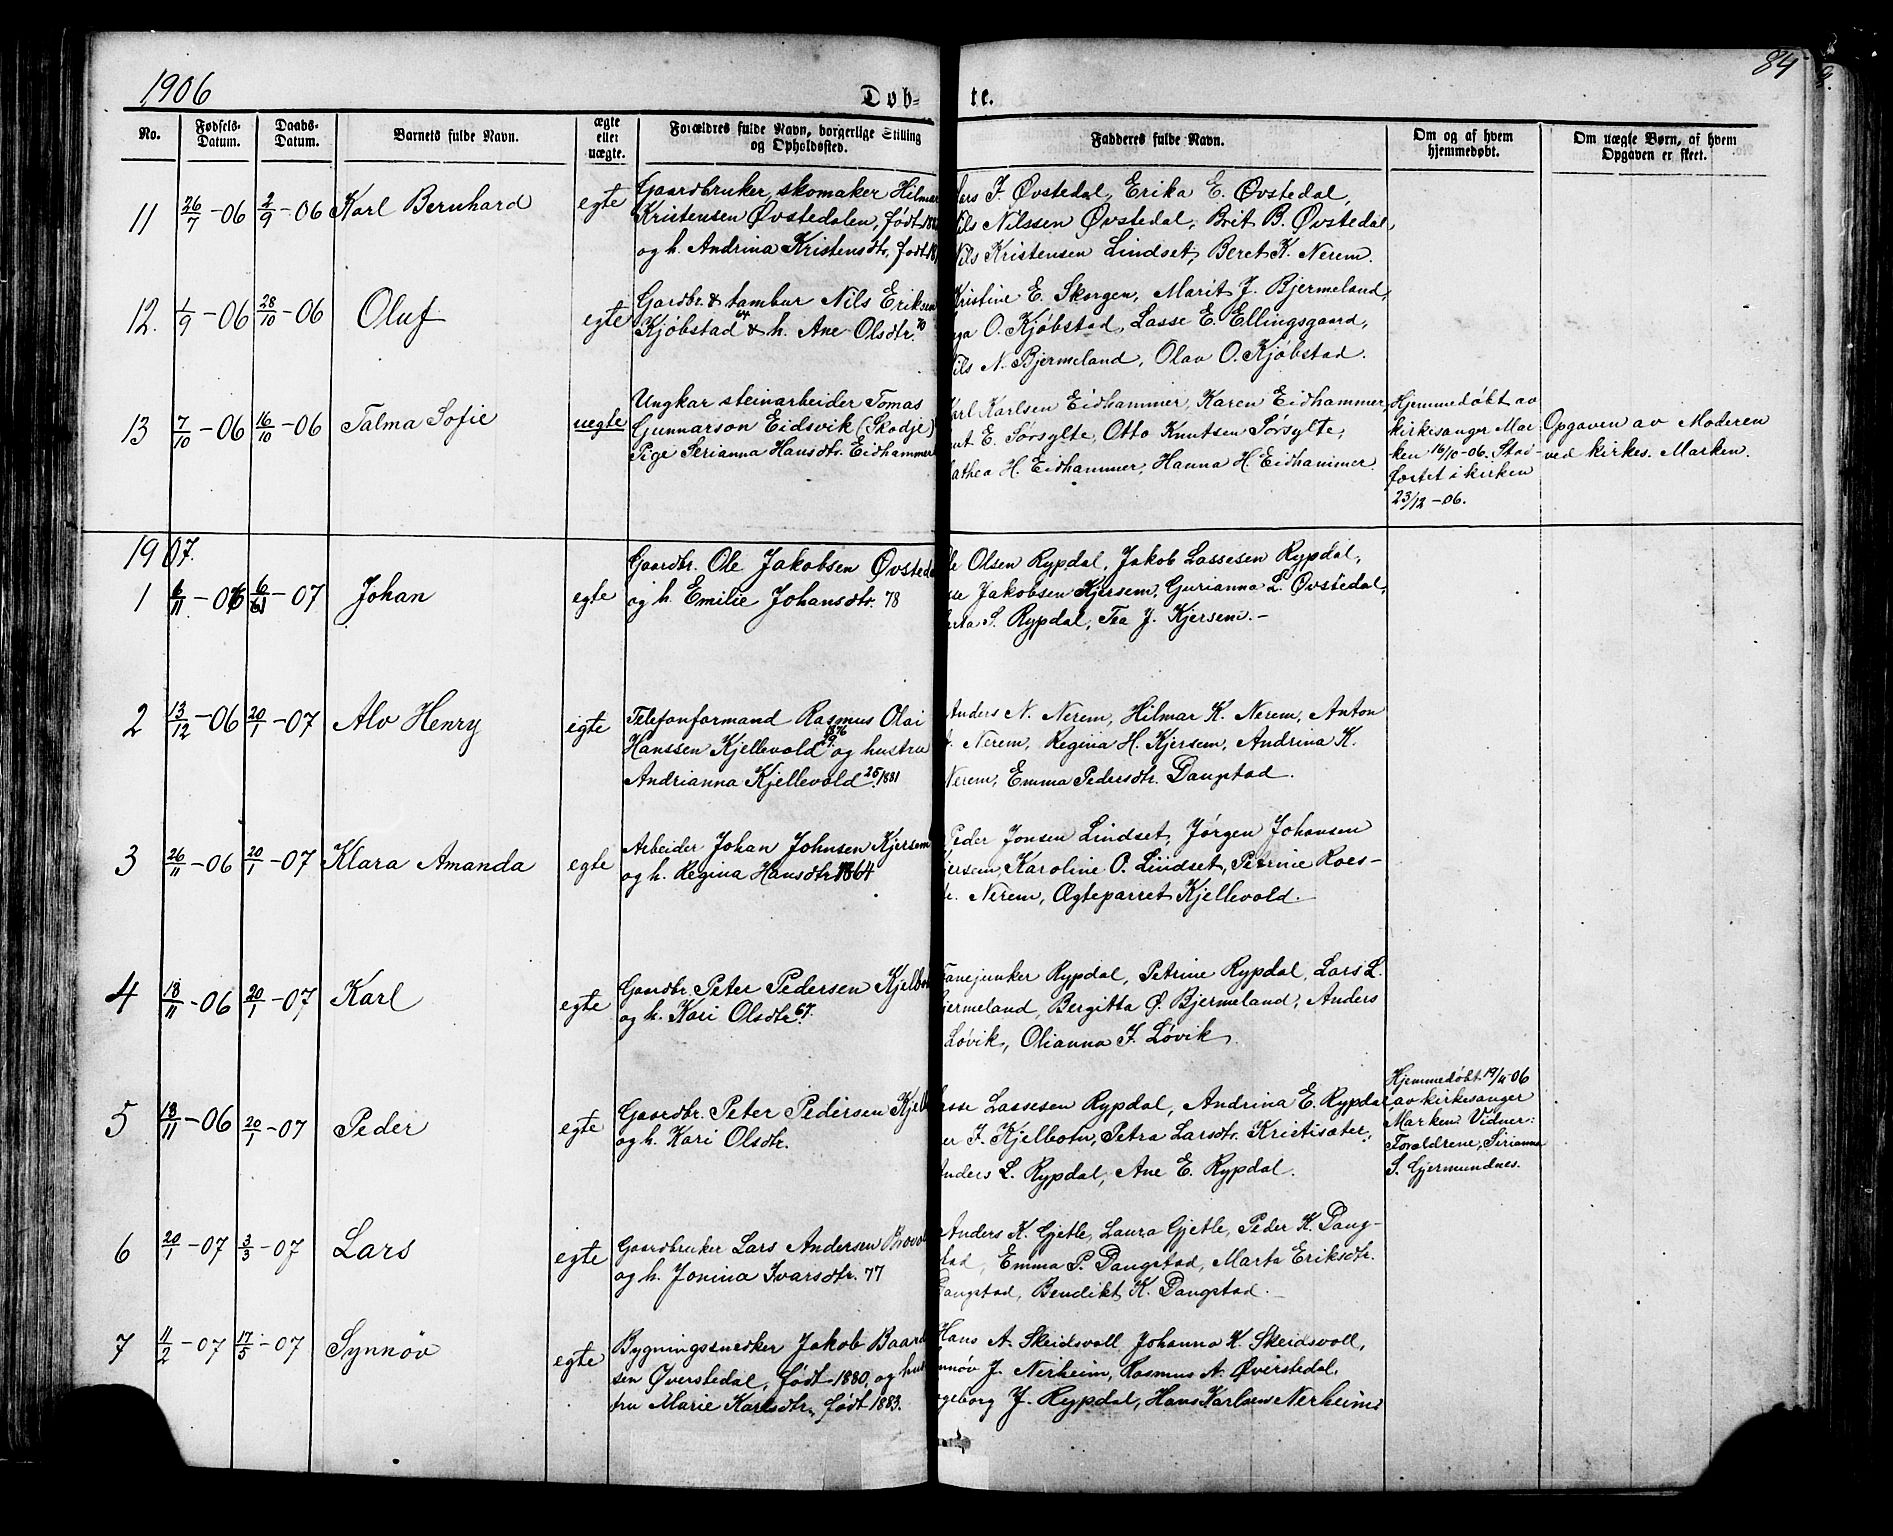 1906
84
Døb- te.
No.
Fødsels-
Datum.
Daabs-
Datum.
Barnets fulde Navn.
ægte
eller
uægte.
Forældres fulde Navn, borgerlige Stilling
og Opholdssted.
Fadderes fulde Navn.
Om og af hvem
hjemmedøbt.
Om uægte Børn, af hvem
Opgaven er skeet.
11 26/7-06 2/9-06 Karl Bernhard egte
Gaardbruker, skomaker Hilmar
Kristensen Øvstedalen, født
og h. Andrina Kristensdtr, født
J. Øvstedal, Erika E. Øvstedal,
Nilssen Øvstedal, Brit B. Øvstedal,
Nils Kristensen Lindset, Beret K. Nerem.
12. 1/9-06 28/10-06 Oluf egte
Gardbr. & tambur Nils Eriksen
Kjøbstad 64 & h. Ane Olsdtr. 70
Kristine E. Skorgen, Marit J. Bjermeland,
O. Kjøbstad, Lasse E. Ellingsgaard,
N. Bjermeland, Olav O. Kjøbstad.
13 7/10-06 16/10-06 Talma Sofie uegte
Ungkar steinarbeider Tomas
Gunnarson Eidsvik (Skodje)
Pige Serianna Hansdtr. Eidhammer
Karlsen Eidhammer, Karen Eidhammer,
E. Sørsylte, Otto Knutsen Sørsylte,
H. Eidhammer, Hanna H. Eidhammer.
Hjemmedøbt av
kirkesanger Mar-
ken 16/10-06. Stad-
fæstet i kirken
23/12-06.
Opgaven av Moderen
ved kirkes. Marken.
1907.
1 6/11-06 6/1-07 Johan egte
Gaardbr. Ole Jakobsen Øvsted
og h. Emilie Johansdtr. 78
Olsen Rypdal, Jakob Lassesen Rypdal,
Jakobsen Kjersem, Gurianna L. Øvstedal,
S. Rypdal, Tea J. Kjersem.-
2 13/12-06 20/1-07 Alv Henry egte
Telefonformand Rasmus Olai
Hanssen Kjellevold og hustru
Andrianna Kjellevold 25/ 1881
Anders N. Nerem, Hilmar K. Nerem, Anton
Nerem, Regina H. Kjersem, Andrina K.
Nerem, Emma Pedersdtr. Daugstad.
3 26/11-06 20/1-07 Klara Amanda egte
Arbeider Johan Johnsen Kjersem
og h. Regina Hansdtr. 1864
Peder Jonsen Lindset, Jørgen Johansen
Kjersem, Karoline O. Lindset, Petrine Roes-
Nerem, Ægteparret Kjellevold.
4 18/11-06 20/1-07 Karl egte
Gaardbr. Peter Pedersen Kjelbo
og h. Kari Olsdtr. 67.
Fanejunker Rypdal, Petrine Rypdal, Lars L.
Bjermeland, Bergitta Ø. Bjermeland, Anders
Løvik, Olianna J. Løvik.
5 18/11-06 20/1-07 Peder egte
Gaardbr. Peter Pedersen Kjelb
og h. Kari Olsdtr.
Lasse Lassesen Rypdal, Andrina E. Rypdal,
J. Kjelbotn, Petra Larsdtr. Kristisæter,
Anders L. Rypdal, Ane E. Rypdal.
Hjemmedøbt 19/11-06
av kirkesanger
Marken. Vidner:
Foræeldrene, Sirianna
S. Gjermundnes.
6 20/1-07 3/3-07 Lars egte
Gaardbruker Lars Andersen
og h. Jonina Ivarsdtr. 77
Anders K. Gjetle, Laura Gjetle, Peder K. Daug-
stad, Emma P. Daugstad, Marta Eriksdtr.
Daugstad, Bendikt K. Daugstad.-
7 11/2-07 17/5-07 Synnøv egte
Bygningssnedker Jakob Baard
sen Øverstedal, født 1880, og hus
tru Marie Karlsdtr, født 1883.
Hans A. Skeidsvoll, Johanna K. Skeidsvoll,
J. Nerheim, Rasmus A. Øverstedal,
J. Rypdal, Hans Karlsen Nerheim.